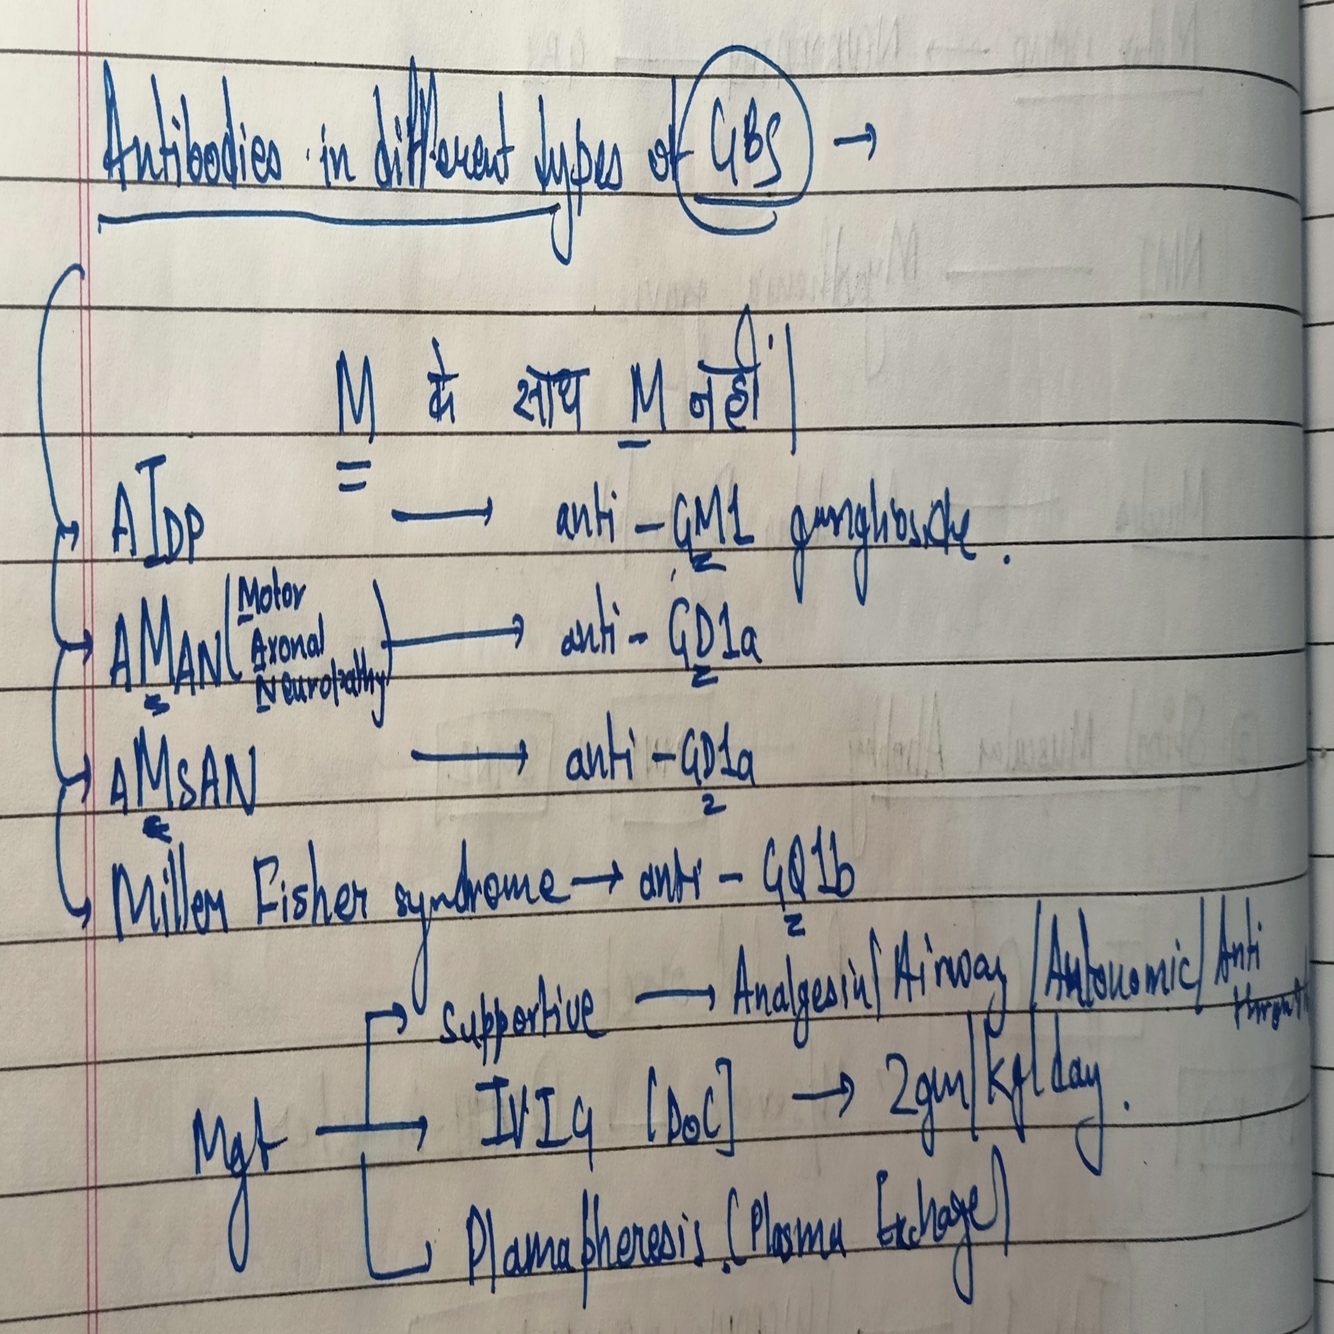 Antibodies in different types of GBS →
M के साथ M नहीं।
AIDP → anti - GM1 ganglioside.
AMAN (Motor Axonal Neuropathy) → anti - GD1a
AMSAN → anti - GD1a
Miller Fisher syndrome → anti - GQ1b
Supportive → Analgesia / Airway / Autonomic / Anti
Mgt → IVIG [DOC] → 2gm/kg/day.
Plamapheresis (Plasma Exchage)